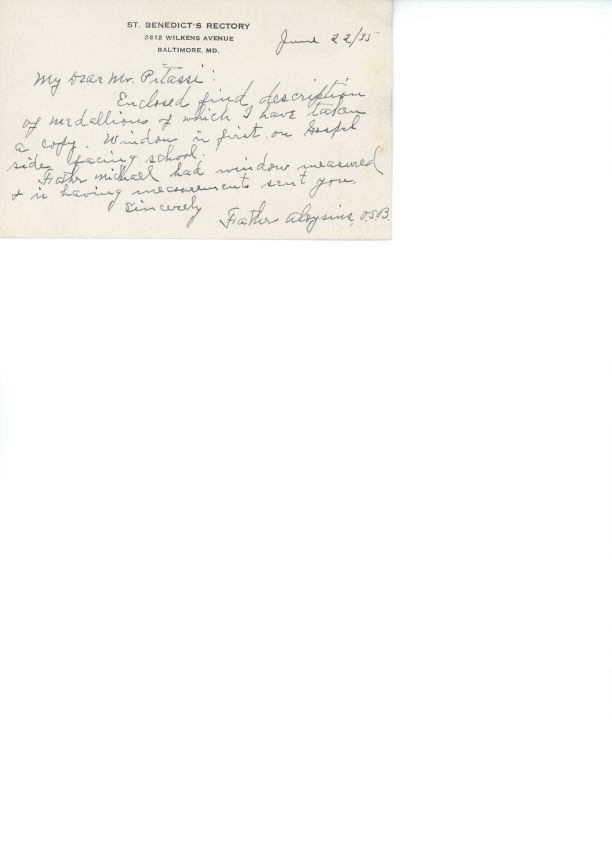 ST. BENEDICT'S RECTORY
2612 WILKENS AVENUE
BALTIMORE, MD.
June 22/35
My Dear Mr. Pitassi:
Enclosed find, description
of medallions of which I have taken
a copy. Window in first on Gospel
side facing school.
Father Michael had window measured
& is having measurements sent you.
Sincerely
Father Aloysius, O.S.B.